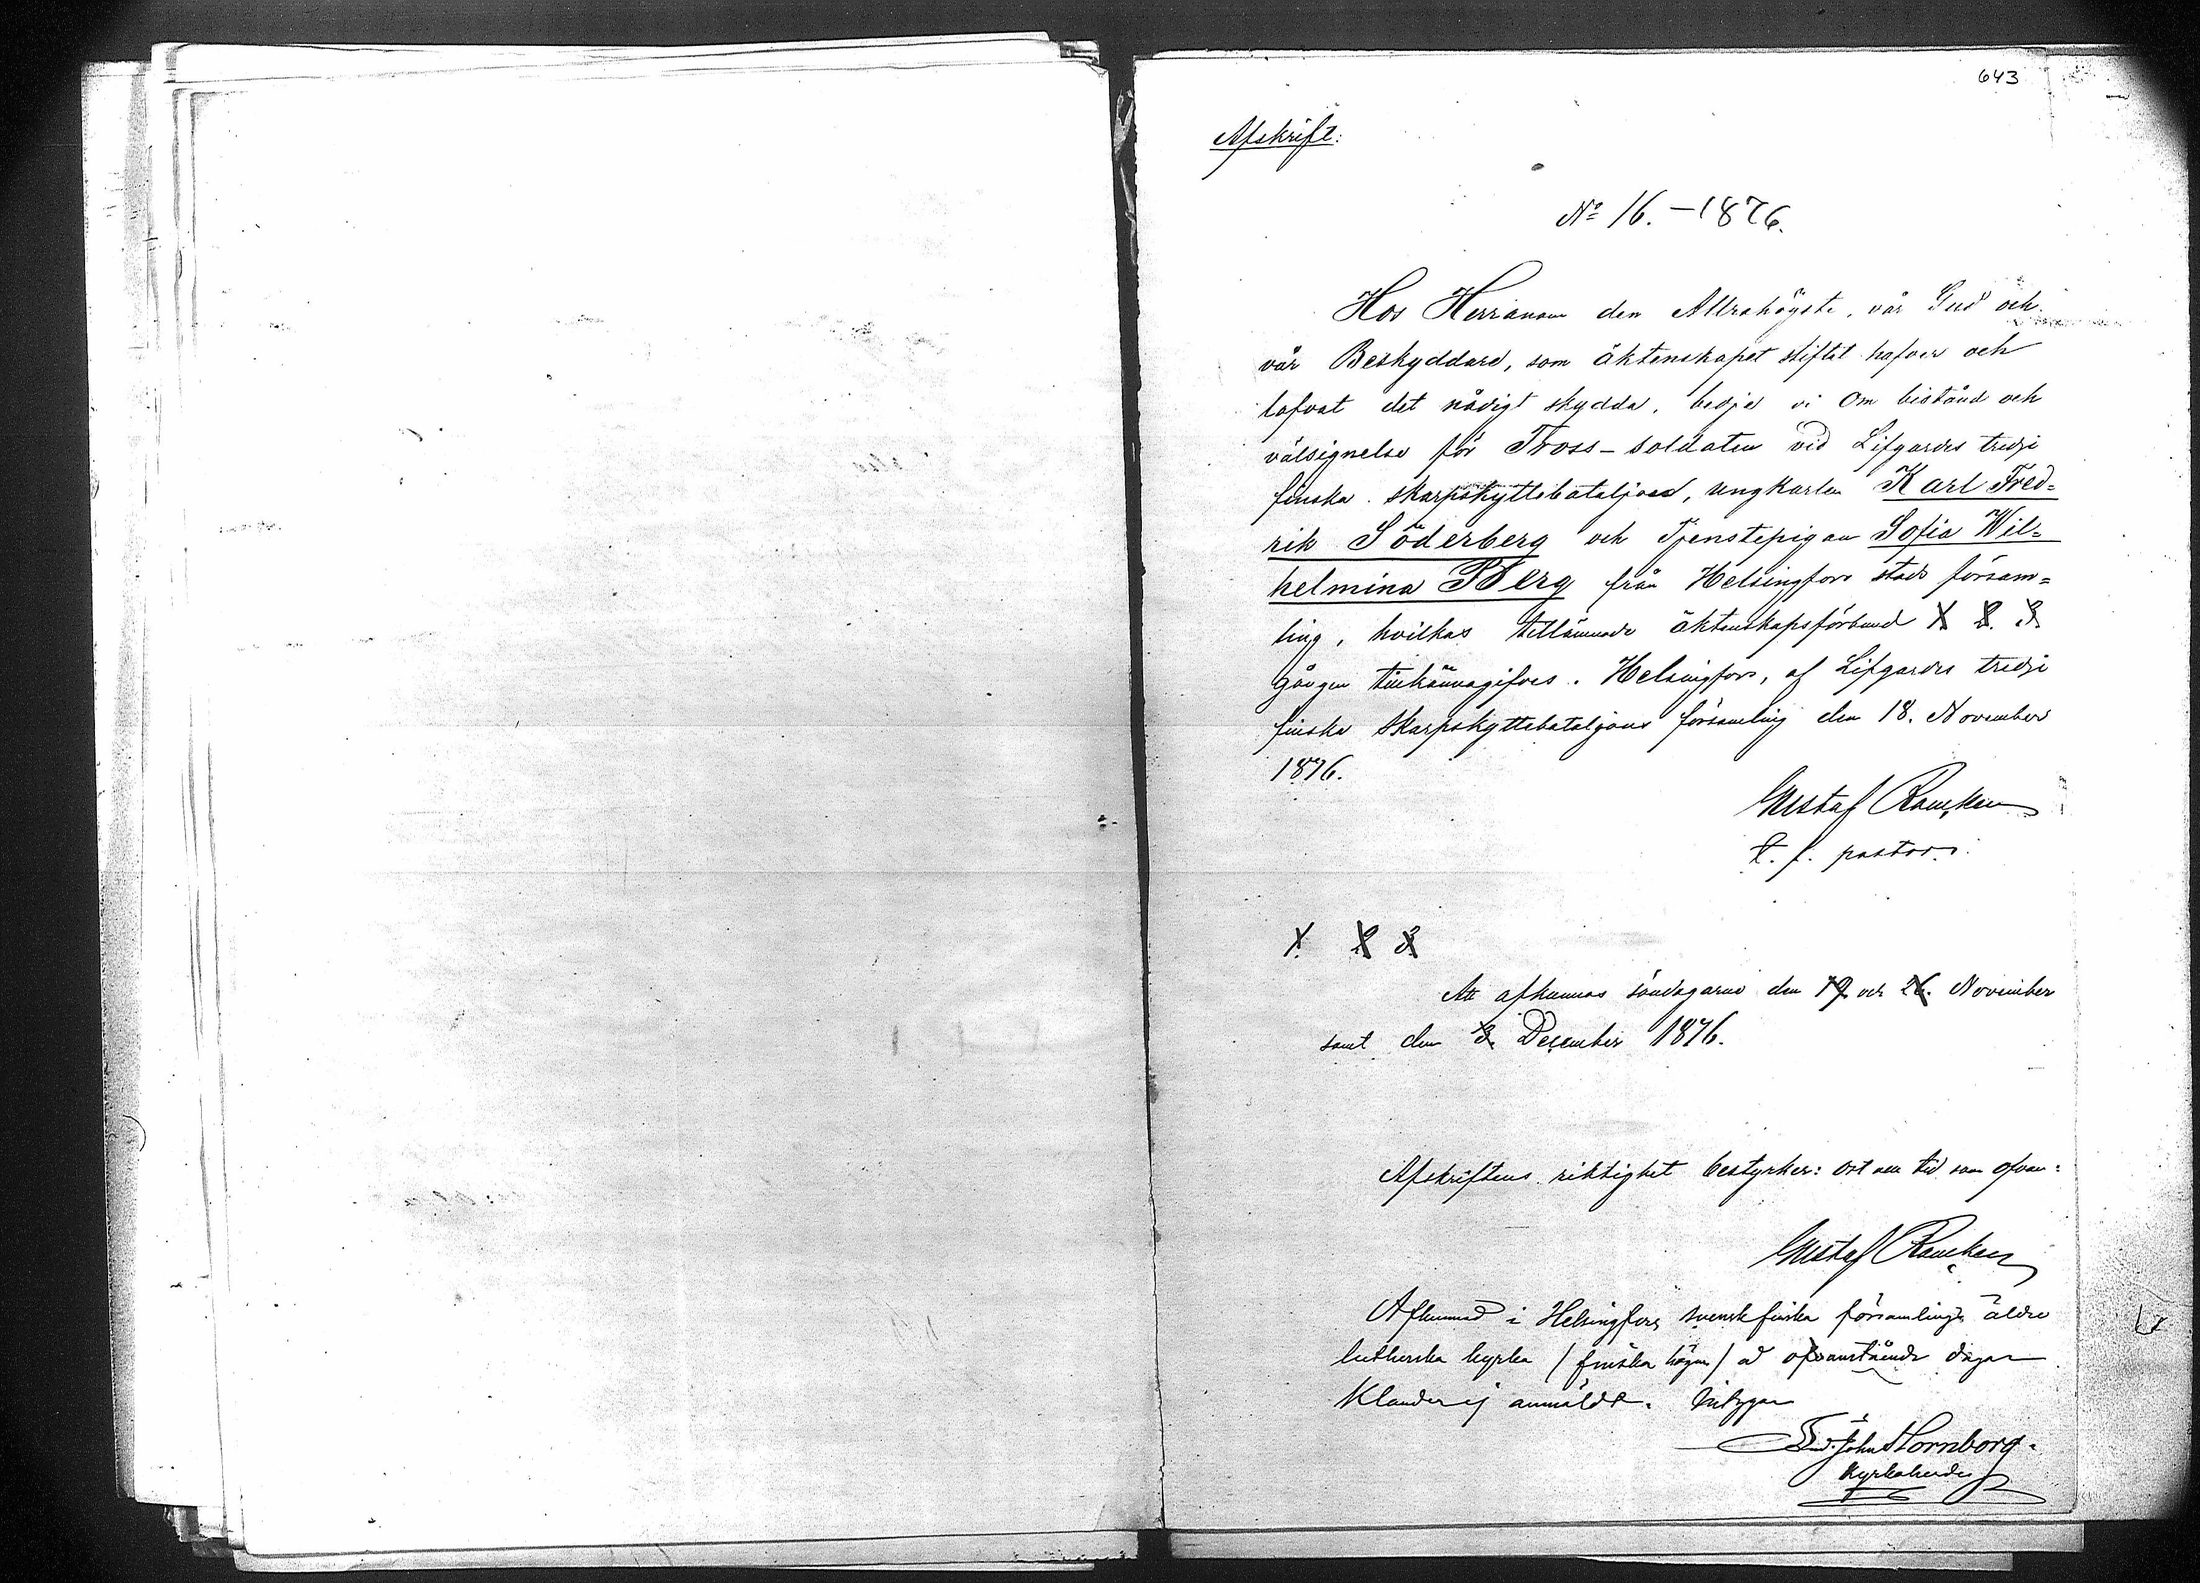 643
Afskrift:
No 16. – 1876.
Hos Herranom den Allrahögste, vår Gud och
vår Beskyddare, som äktenskapet stiftat hafver och
lofvat det nådigt skydda, bedja vi om bistånd och
välsignelse för Tross-soldaten vid Lifgardes tredje
finska skarpskyttebataljon, ungkarlen Karl Fred=
rik Söderberg och Tjenstepigan Sofia Wil=
helmina Berg från Helsingfors stads försam=
ling, hvilkas tillämnade äktenskapsförbund 1. 2. 3.
gången tillkännagifves. Helsingfors, af Lifgardes tredje
finska Skarpskyttebataljons församling den 18. November
1876.
Gustaf Rancken
t. f. pastor.
1. 2. 3.
Att afkunnas söndagarne den 19 och 26. November
samt den 3. December 1876.
Afskriftens riktighet bestyrker: ort och tid som ofvan:
Gustaf Rancken
Afkunnad i Helsingfors svenskfinska församlings äldre
lutherska kyrka / finska högm / å ofvanstående dagar
Klander ej anmäldt. Intygar
John Hornborg.
Kyrkoherde